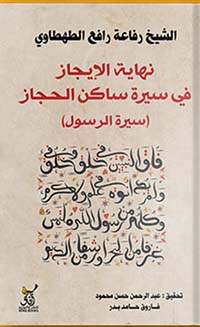 الشيخ رفاعة رافع الطهطاوي
نهاية الإيجاز
في سيرة ساكن الحجاز
(سيرة الرسول)
فاق النبيين في خلق وفي خلق
ولم يدانوه في علم ولا كرم
وكلهم من رسول الله ملتمس
غرفا من البحر أو رشفا من الديم
تحقيق : عبد الرحمن حسن محمود
فاروق حامد بدر